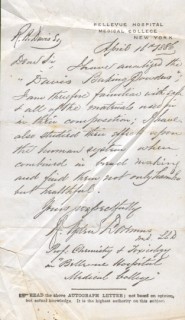 BELLEVUE HOSPITAL
MEDICAL COLLEGE
NEW YORK
April 16th 1886
Dear Sir
I have analyzed the
"Davis Baking Powder"
I am therefore familiar with
all of the materials used
in their composition; I have
also studied their effect upon
the human system when
combined in bread making
and find them not only harmless
but healthful.
Yours respectfully
R. Ogden Doremus
M.D. LL.D.
Prof. Chemistry & Toxicology
in "Bellevue Hospital
Medical College"
READ the above AUTOGRAPH LETTER; not based on opinion,
but actual knowledge. It is the highest authority on this subject.